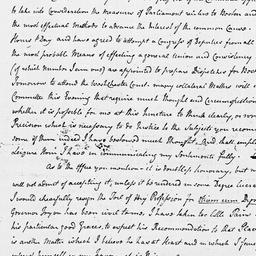 to take into Consideration the Measures of Parliament relative to Boston and
the most effectual Methods to advance the Interest of the common Cause.
Hours a Day and have agreed to attempt a Congress of Deputies from all
the most probable Means of effecting a general Union and Consistency
(of which Number I am one) was appointed to prepare Dispatches for Bos
Tomorrow to attend the Committee. Many collateral Matters will
Committee this Evening that require much Thought and Circumspection
whether it is possible for me at this Juncture to think clearly, or
Precision which is necessary to do Justice to the Subjects you recom
some of them indeed I have bestowed much Thought. And shall employ
leisure Hour I have in communicating my Sentiments fully.
As to the Office you mention it is doubtless honorary, but
will not admit of accepting it, unless it be rendered in some Degree lucra
I would chearfully resign the Sort of Profession for
Governor Tryon has been civil towards I have taken too little Pains
his particular good Graces, to expect his Recommendation to that Place
is another Matter which I believe to have at Heart and in which I